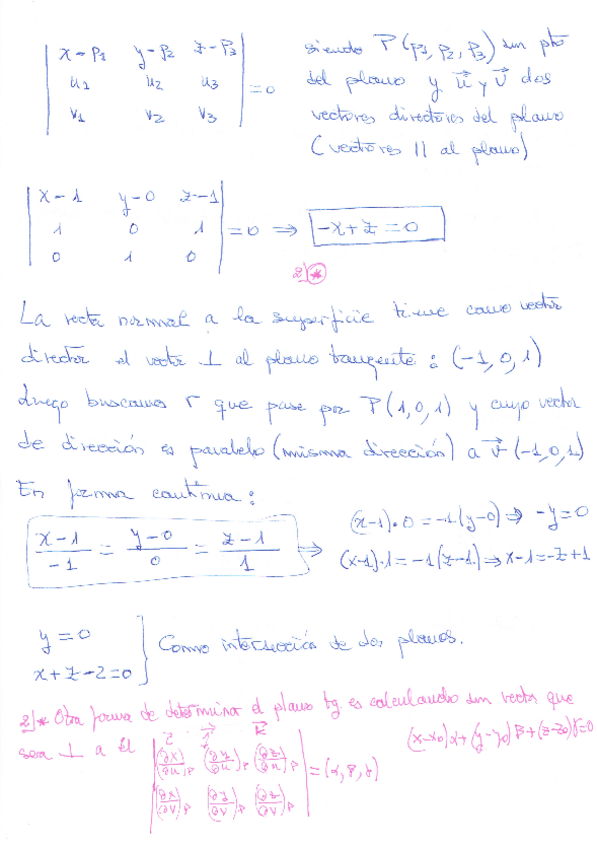 | x-p₁ y-p₂ z-p₃ |
| u₁ u₂ u₃ | = 0
| v₁ v₂ v₃ |
siendo P(p₁, p₂, p₃) un pto
del plano y u⃗ y v⃗ dos
vectores directores del plano
(vectores || al plano)
| x-1 y-0 z-1 |
| 1 0 1 | = 0 ⇒ -x+z=0
| 0 1 0 |
2)*
La recta normal a la superficie tiene como vector
director el vector ⊥ al plano tangente: (-1,0,1)
Luego buscamos r que pase por P(1,0,1) y cuyo vector
de dirección es paralelo (misma dirección) a v⃗(-1,0,1)
En forma continua:
(x-1)/-1 = (y-0)/0 = (z-1)/1 ⇒
(x-1)·0=-1(y-0) ⇒ -y=0
(x-1)·1=-1(z-1) ⇒ x-1=-z+1
y=0
x+z-2=0 } Como intersección de dos planos.
2)* Otra forma de determinar el plano tg es calculando un vector que
sea ⊥ a él
i⃗ j⃗ k⃗
| (∂x/∂u)p (∂y/∂u)p (∂z/∂u)p | = (α, β, γ)
| (∂x/∂v)p (∂y/∂v)p (∂z/∂v)p |
(x-x₀)α+(y-y₀)β+(z-z₀)γ=0